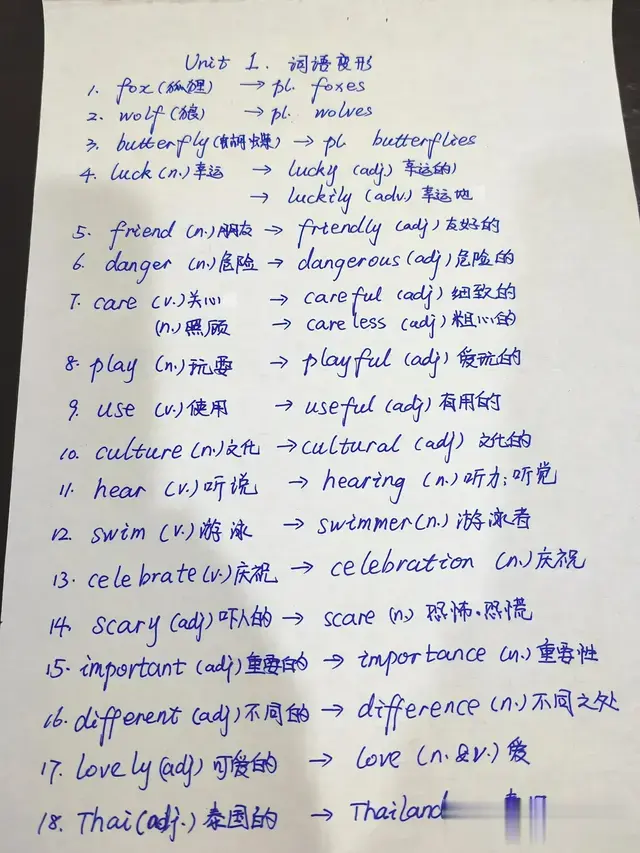 Unit 1. 词语变形
1. fox (狐狸) → pl. foxes
2. wolf (狼) → pl. wolves
3. butterfly (蝴蝶) → pl. butterflies
4. luck (n.) 幸运 → lucky (adj) 幸运的
→ luckily (adv.) 幸运地
5. friend (n.) 朋友 → friendly (adj) 友好的
6. danger (n.) 危险 → dangerous (adj) 危险的
7. care (v.) 关心 → careful (adj) 细致的
(n.) 照顾 → careless (adj) 粗心的
8. play (n.) 玩耍 → playful (adj) 爱玩的
9. use (v.) 使用 → useful (adj) 有用的
10. culture (n.) 文化 → cultural (adj) 文化的
11. hear (v.) 听说 → hearing (n.) 听力; 听觉
12. swim (v.) 游泳 → swimmer (n.) 游泳者
13. celebrate (v.) 庆祝 → celebration (n.) 庆祝
14. scary (adj) 吓人的 → scare (n.) 恐怖、恐慌
15. important (adj) 重要的 → importance (n.) 重要性
16. different (adj) 不同的 → difference (n.) 不同之处
17. lovely (adj) 可爱的 → love (n. & v.) 爱
18. Thai (adj.) 泰国的 → Thailand